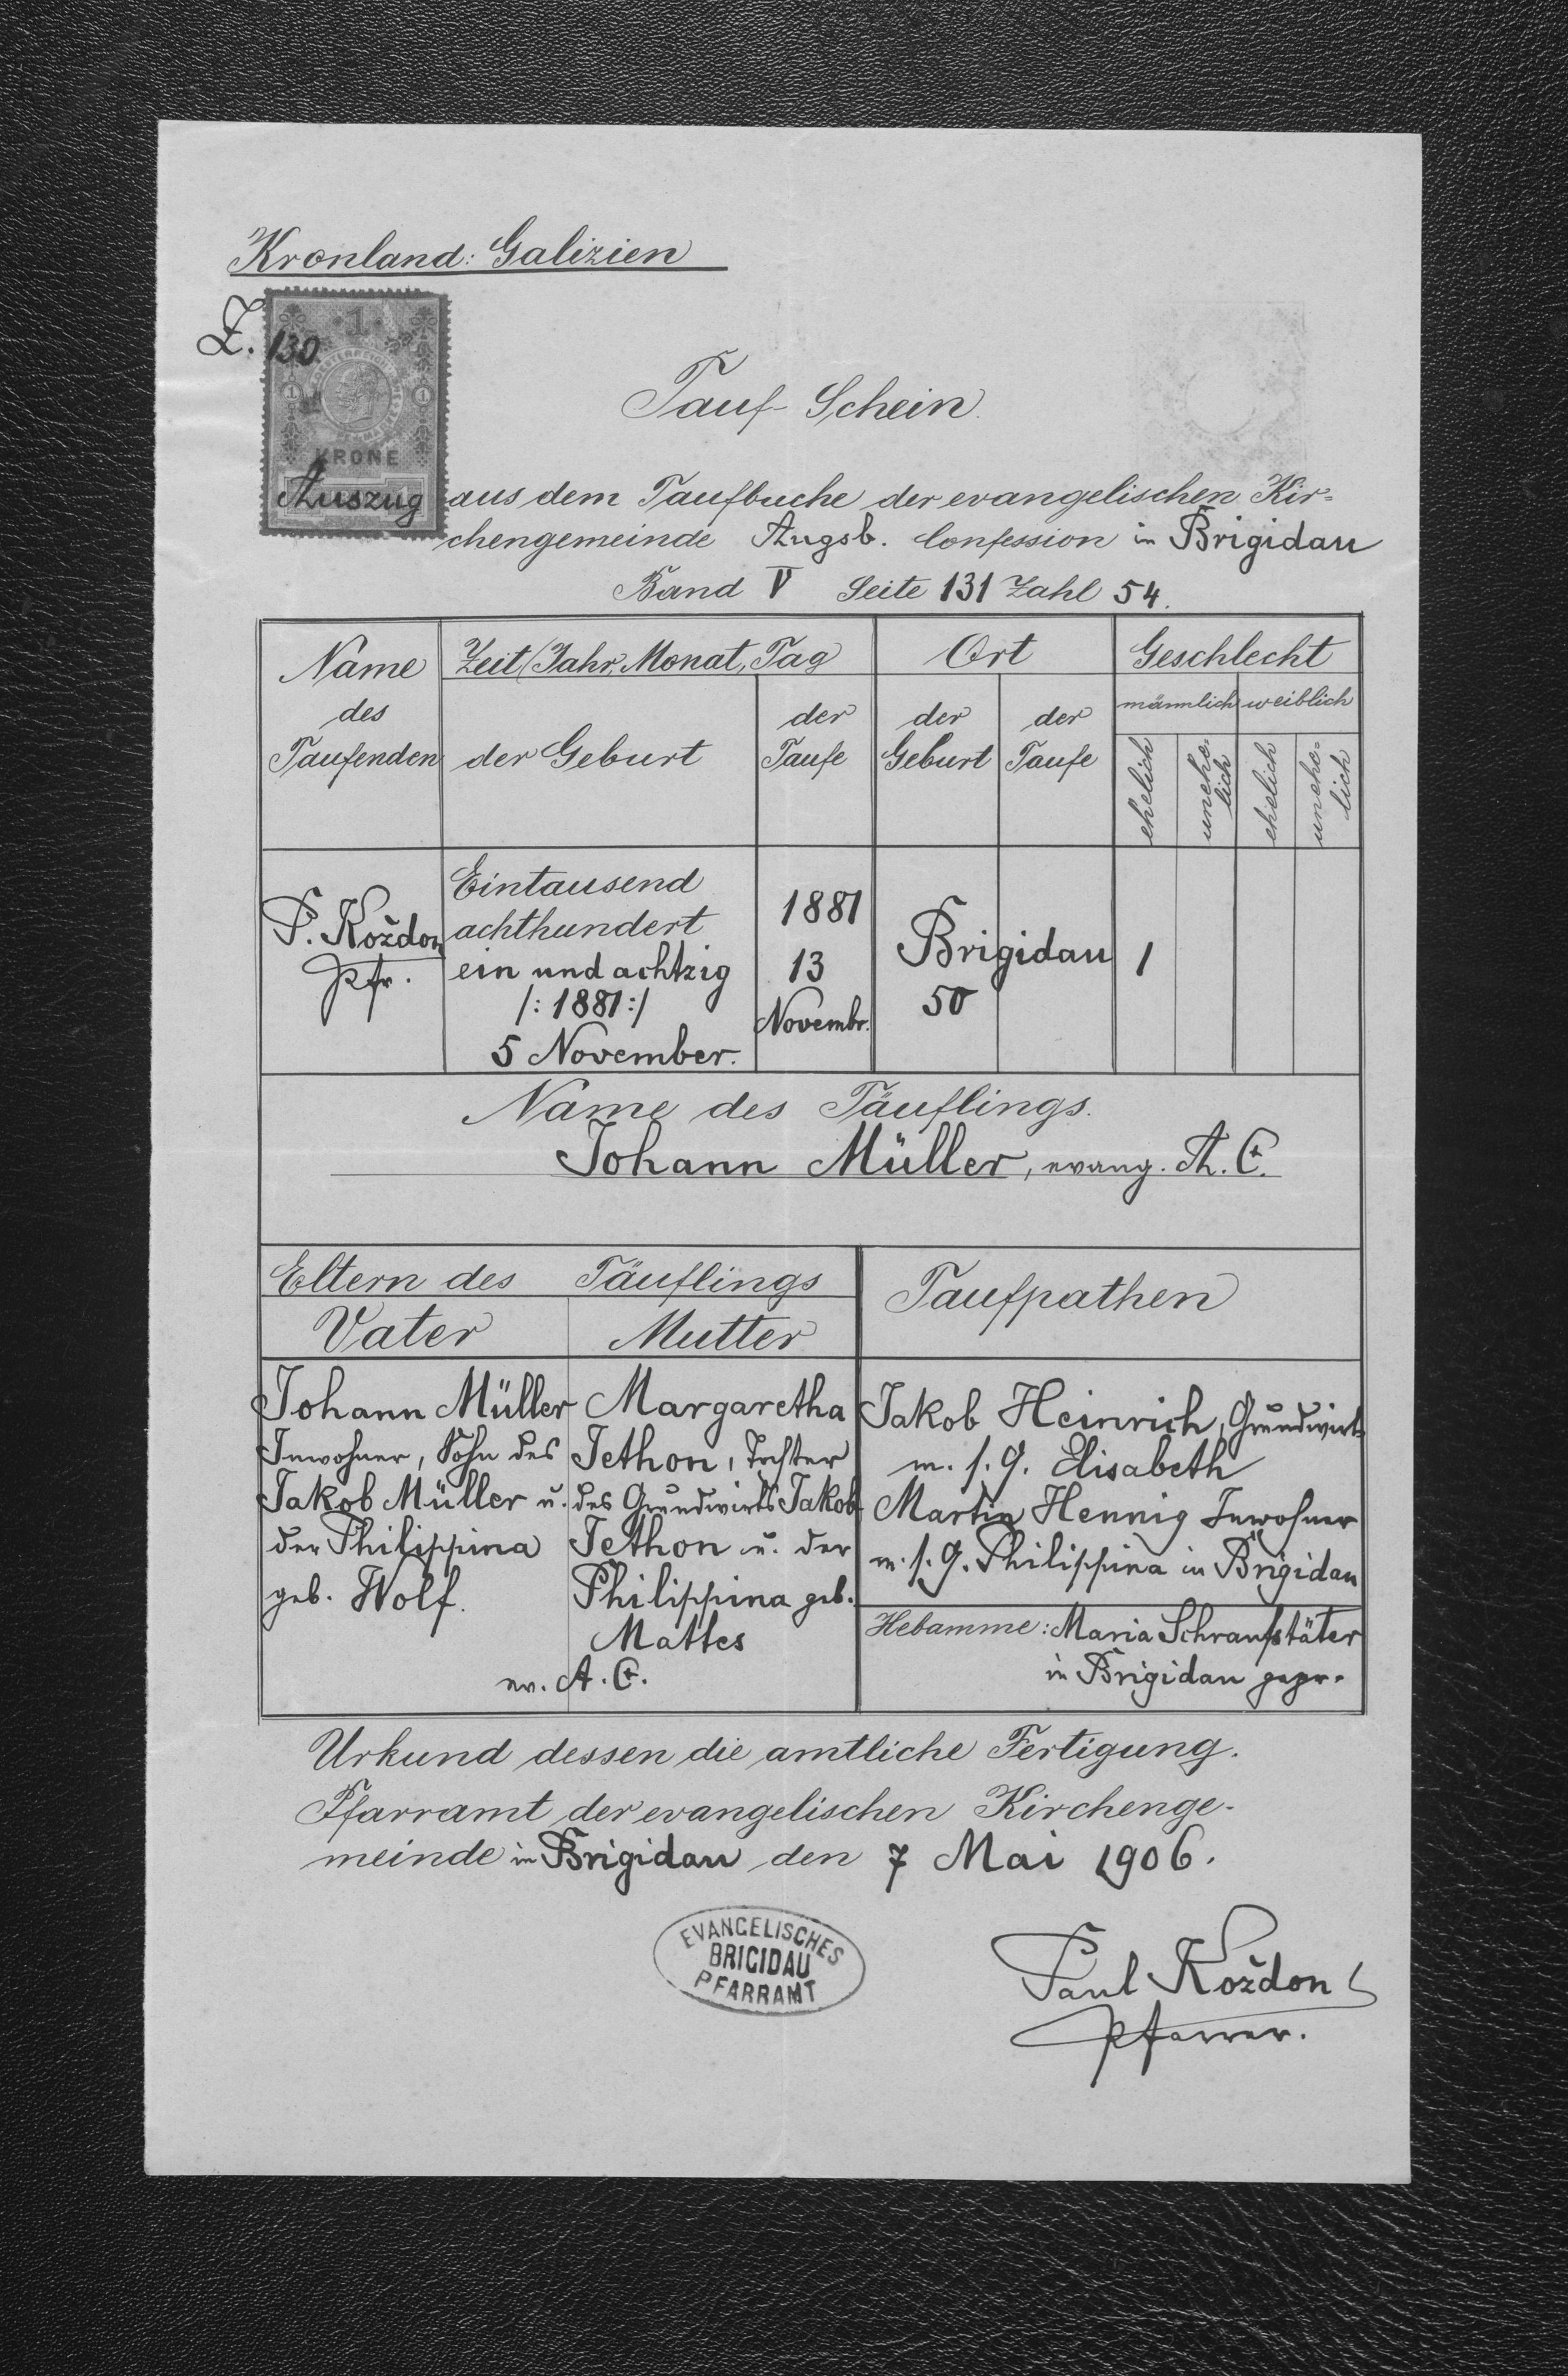 Kronland: Galizien
Z. 130
1
KRONE
Tauf-Schein
Auszug aus dem Taufbuche der evangelischen Kir=
chengemeinde Augsb. Confession in Brigidau
Band V Seite 131 Zahl 54.
Name des Taufenden
Zeit (Jahr, Monat, Tag
der Geburt
der Taufe
Ort
der Geburt
der Taufe
Geschlecht
männlich weiblich
ehelich
unehe-
lich
ehelich
unehe-
lich
P. Koždon
Pfr.
Eintausend
achthundert
ein und achtzig
/: 1881 :/
5 November.
1881
13
Novembr.
Brigidau
50
1
Name des Täuflings.
Johann Müller, evang. A. C.
Eltern des Täuflings
Vater
Mutter
Taufpathen
Johann Müller
Inwohner, Sohn des
Jakob Müller u.
der Philippina
geb. Wolf.
Margaretha
Jethon, Tochter
des Grundwirts Jakob
Jethon u. der
Philippina geb.
Mattes
ev. A. C.
Jakob Heinrich, Grundwirt
m. s. G. Elisabeth
Martin Hennig Inwohner
m. s. G. Philippina in Brigidau
Hebamme: Maria Schraufstäter
in Brigidau gepr.
Urkund dessen die amtliche Fertigung.
Pfarramt der evangelischen Kirchenge-
meinde in Brigidau den 7 Mai 1906.
EVANGELISCHES
BRIGIDAU
PFARRAMT
Paul Koždon
Pfarrer.